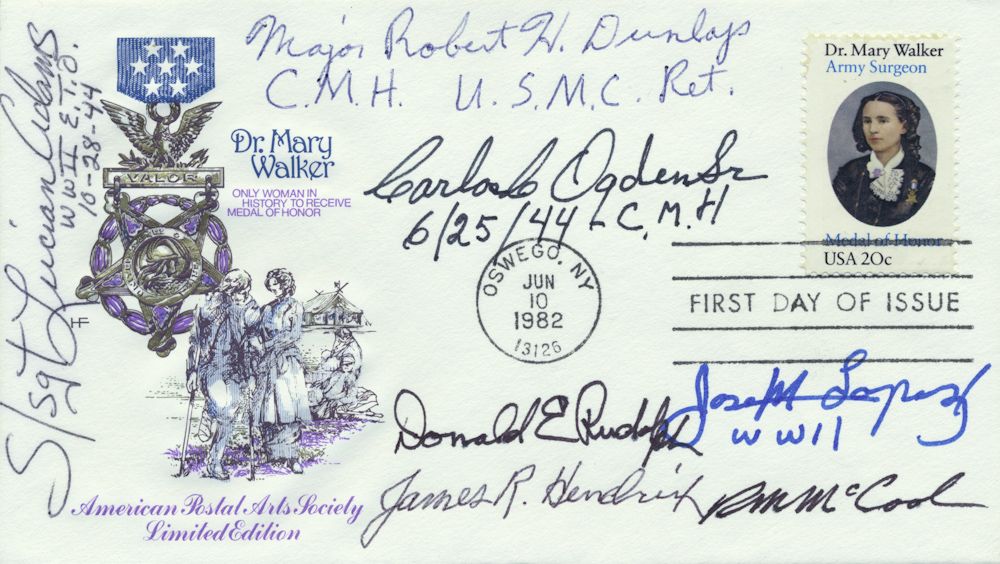 S/Sgt Lucian Adams
WW II E.T.O.
10-28-44
Major Robert H. Dunlap
C.M.H. U.S.M.C. Ret.
VALOR
Dr. Mary
Walker
ONLY WOMAN IN
HISTORY TO RECEIVE
MEDAL OF HONOR
Carlos C Ogden Sr
6/25/44 - C.M.H
Dr. Mary Walker
Army Surgeon
Medal of Honor
USA 20c
OSWEGO, NY
JUN
10
1982
13126
FIRST DAY OF ISSUE
HF
Donald E Rudolph
Jose M Lopez
WWII
James R. Hendrix
RM McCool
American Postal Arts Society
Limited Edition